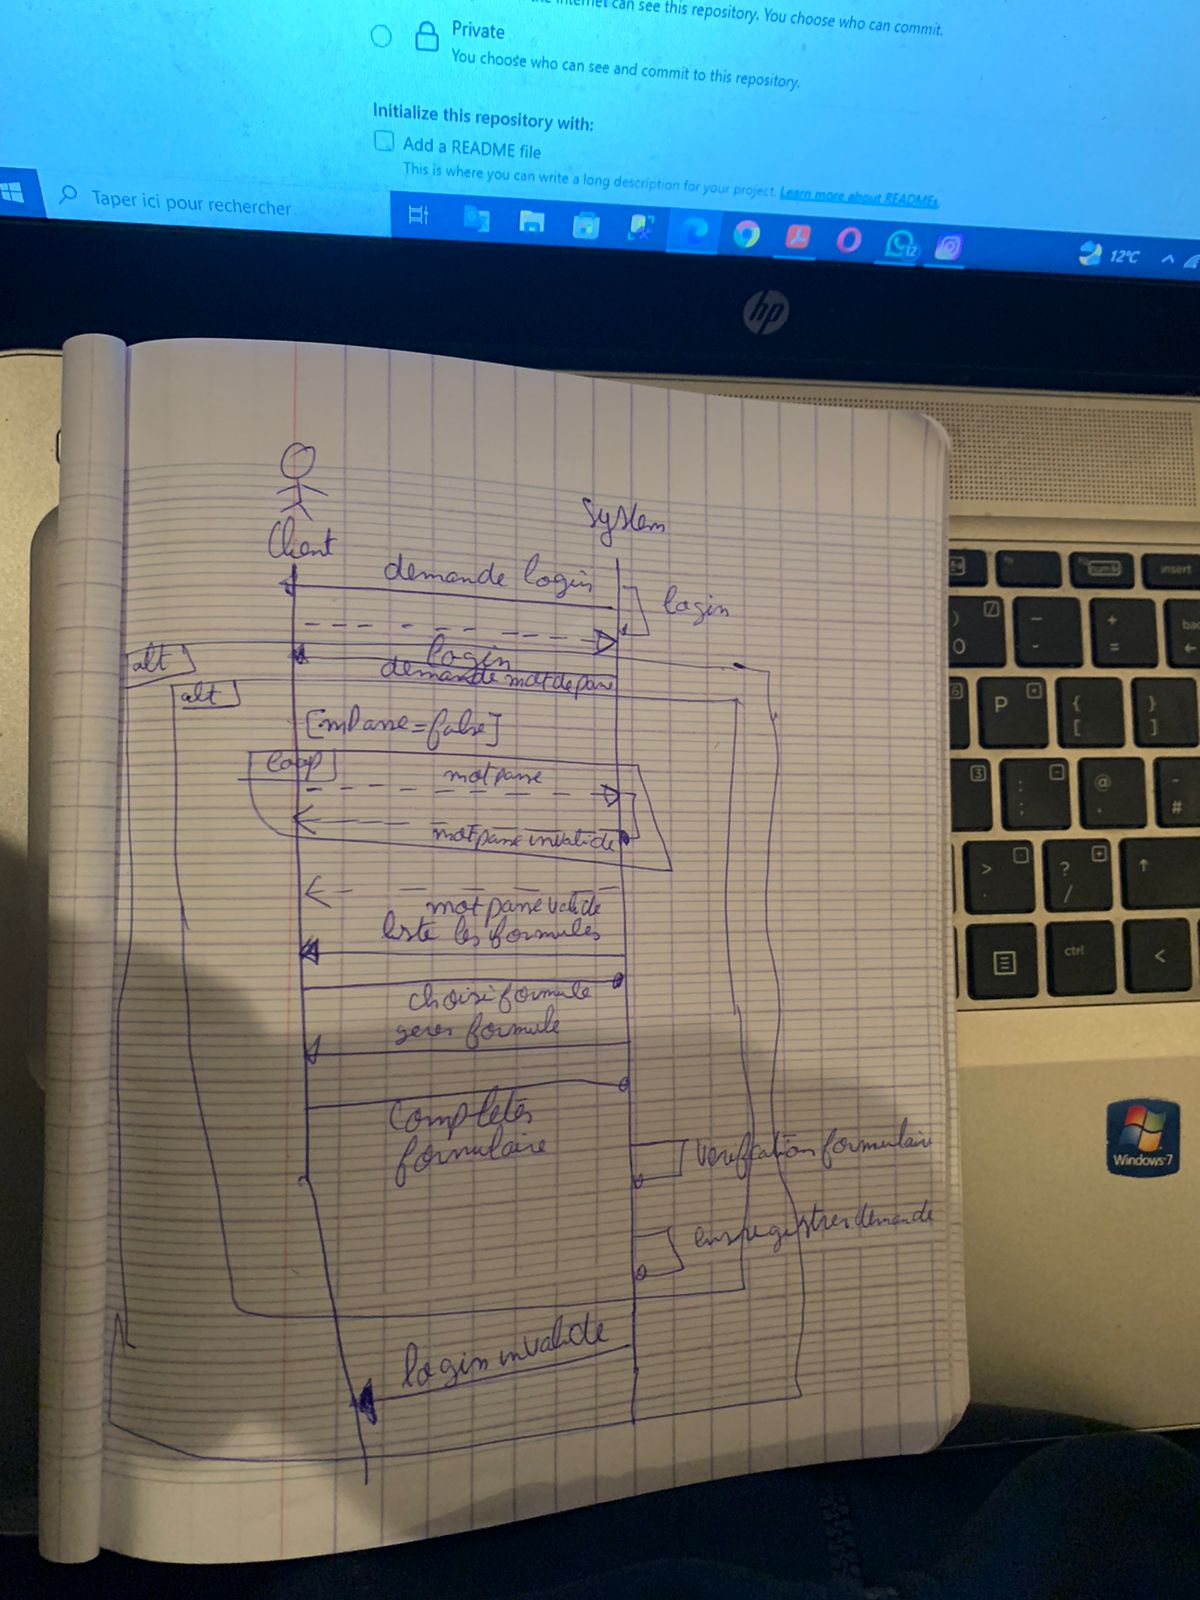 the internet can see this repository. You choose who can commit.
Private
You choose who can see and commit to this repository.
Initialize this repository with:
Add a README file
This is where you can write a long description for your project. Learn more about READMEs.
Taper ici pour rechercher
12
12°C
hp
Client
System
demande login
login
login
alt
demande mot de passe
alt
[mPasse=false]
loop
mot passe
mot passe invalide
mot passe valide
liste les formules
choisi formule
gerer formule
Completer
formulaire
verification formulaire
enregistrer demande
login invalide
num lk
insert
P
{
[
}
]
@
#
>
?
/
ctrl
<
Windows 7